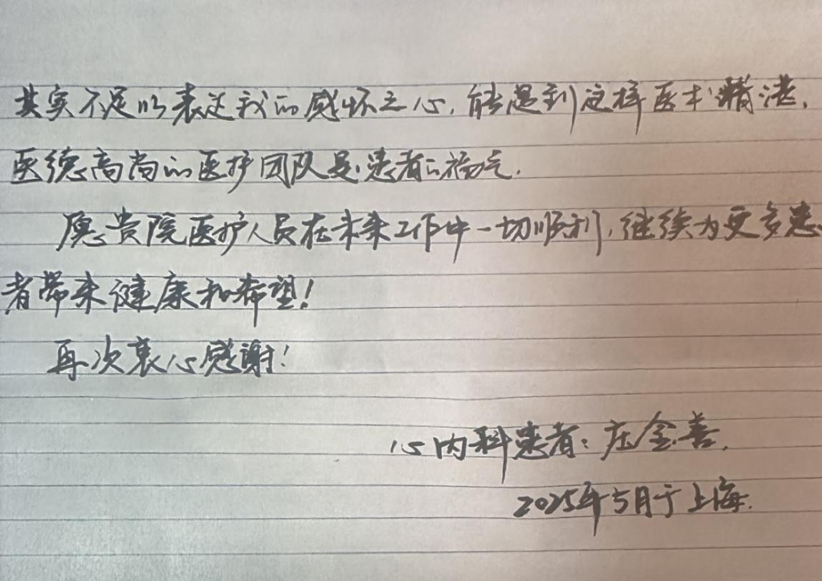 其实不足以表达我的感怀之心,能遇到这样医术精湛,
医德高尚的医护团队是患者的福气.
愿贵院医护人员在未来工作中一切顺利,继续为更多患
者带来健康和希望!
再次衷心感谢!
心内科患者:庄金善.
2025年5月于上海.